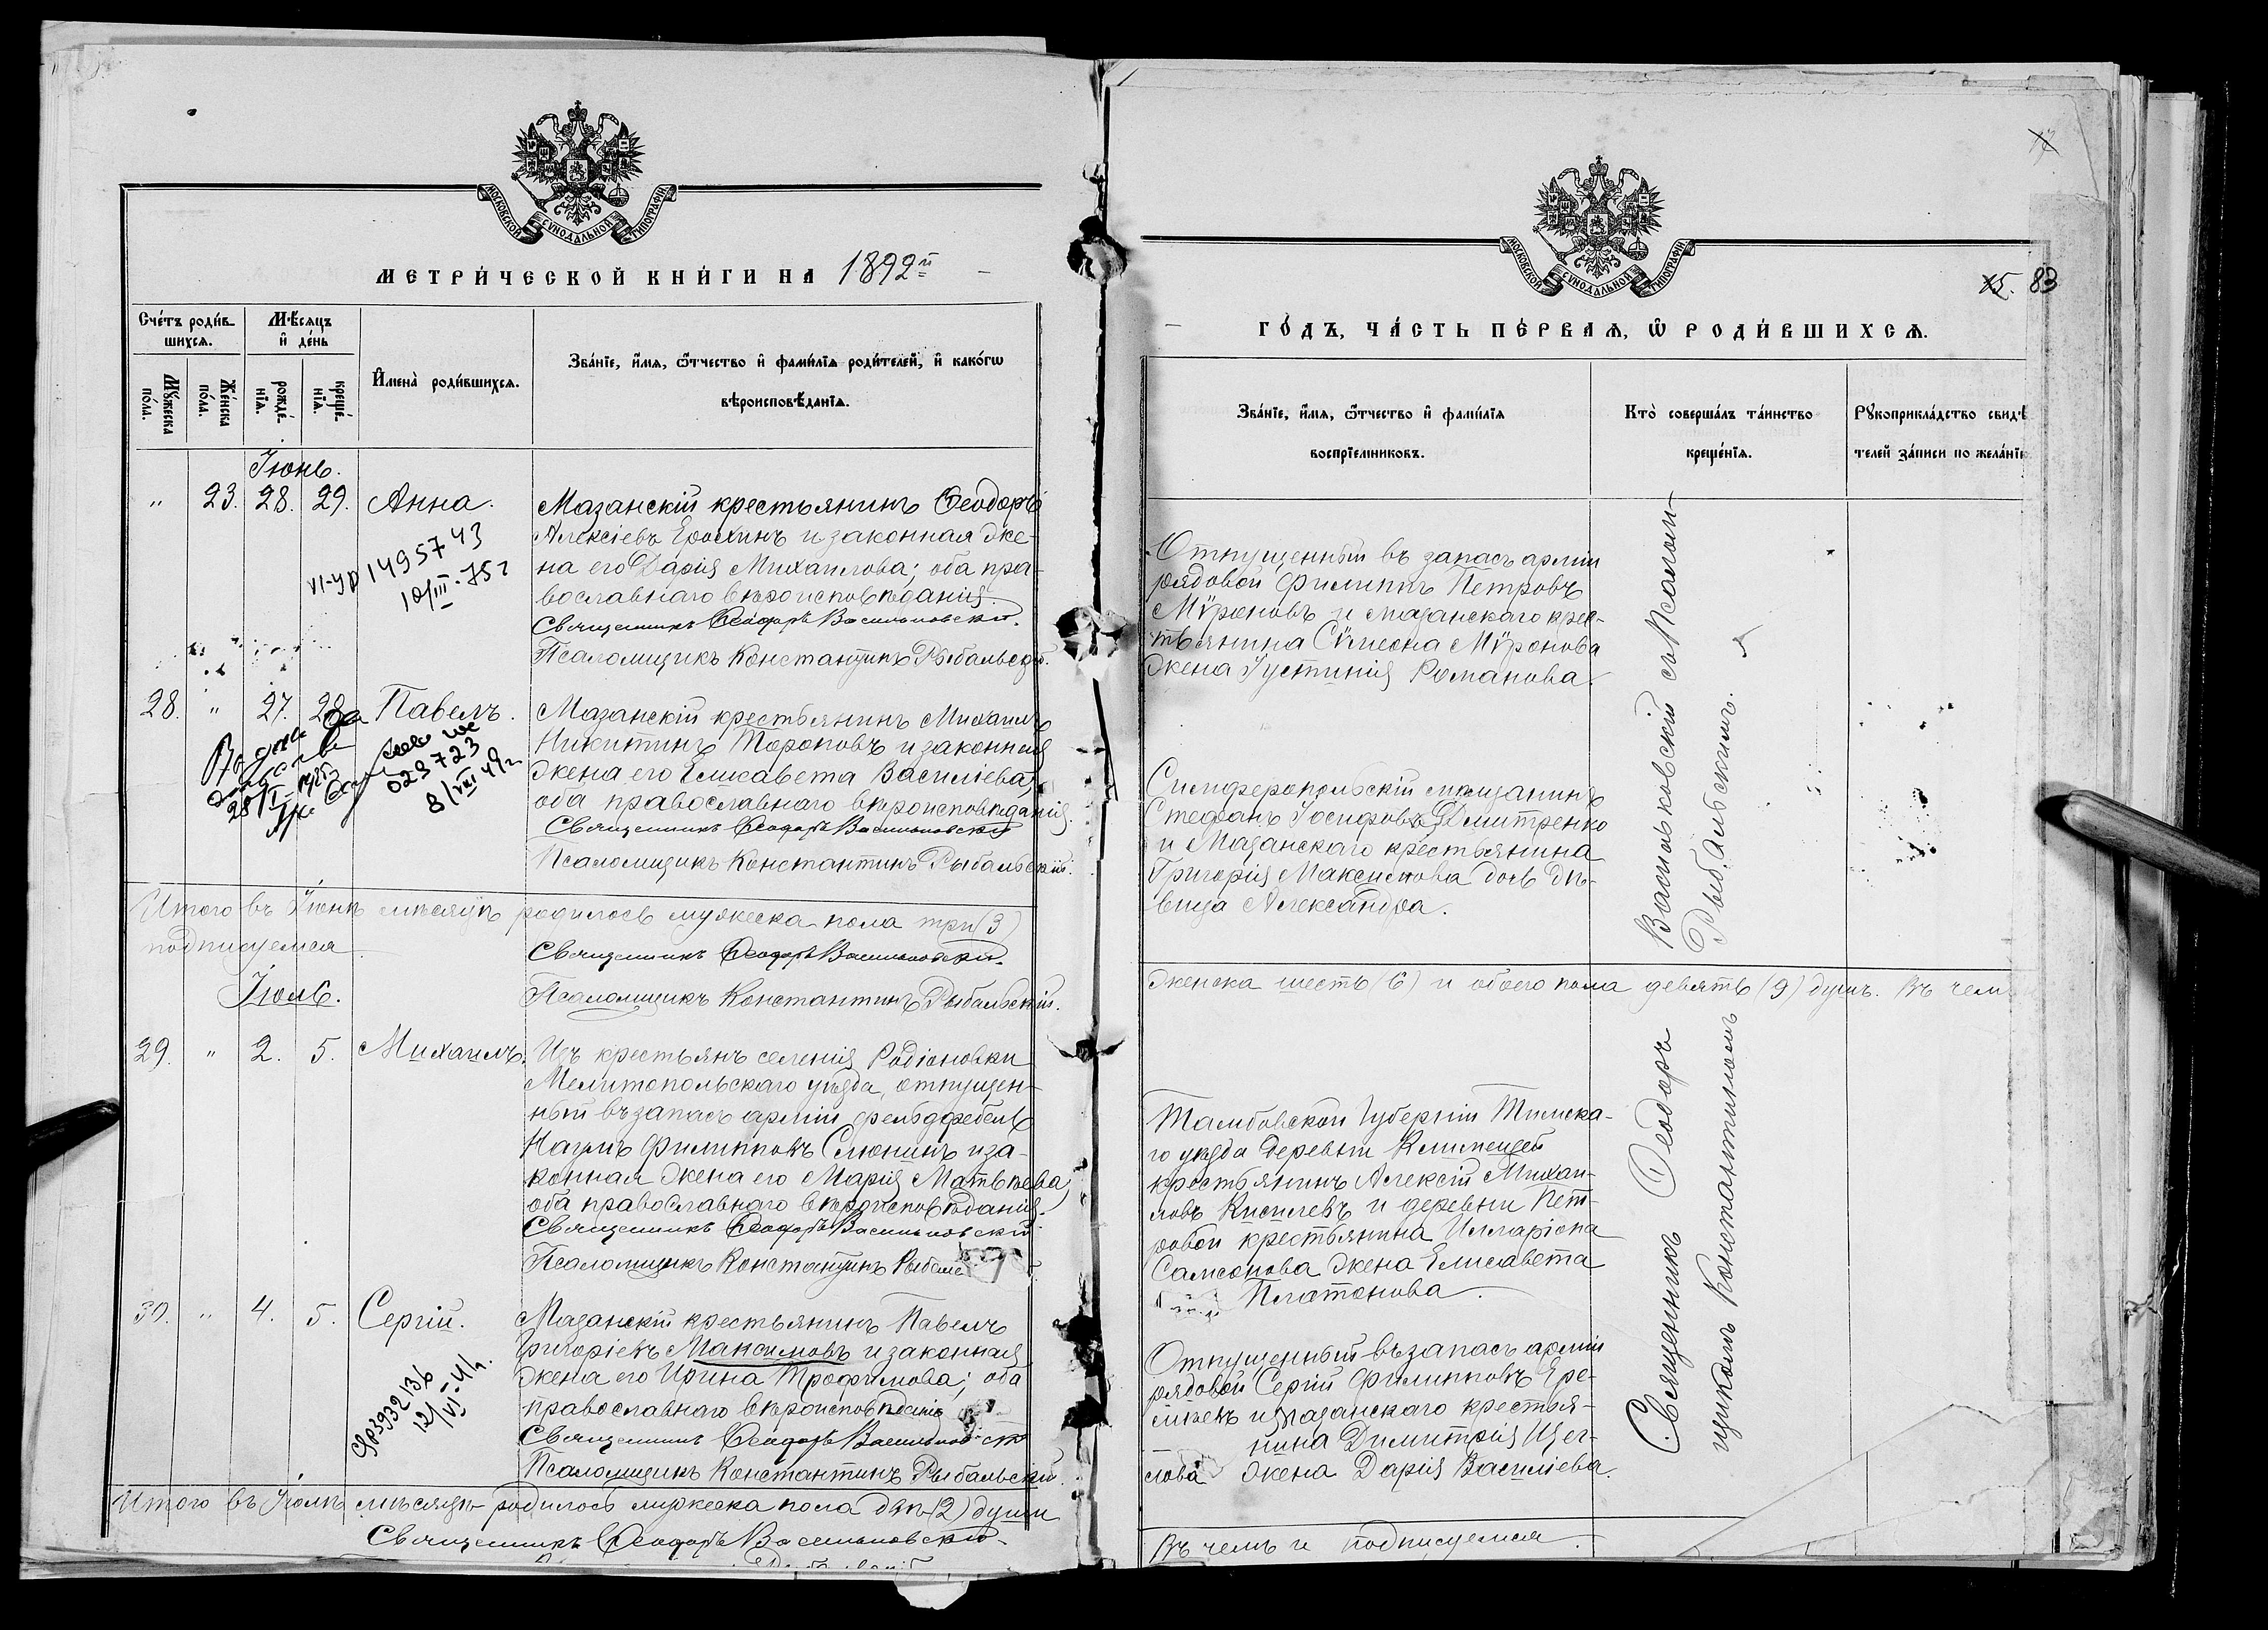 МОСКОВСКОЙ СѴНОДАЛЬНОЙ ТИПОГРАФІИ
МЕТРИ́ЧЕСКОЙ КНИ́ГИ НА 1892й
Сче́тъ роди́в-
шихсѧ.
Мѣ́сѧцъ
и҆ де́нь
Мꙋ́жеска
по́ла.
Же́нска
по́ла.
рожде́-
нїѧ.
креще́-
нїѧ.
И҆мена̀ роди́вшихсѧ.
Зва́нїе, и҆́мѧ, ѻ҆́тчество и҆ фами́лїѧ роди́телей, и҆ како́гѡ
вѣроисповѣ́данїѧ.
Іюнь.
" 23. 28. 29. Анна.
Мазанскій крестьянинъ Ѳеодоръ
Алексіевъ Ерохинъ и законная же-
на его Дарія Михаилова; оба пра-
вославнаго вѣроисповѣданія.
Священникъ Ѳеодоръ Васильковскій.
Псаломщикъ Константинъ Рыбальскій.
VI-УР 1495743
10/III-75г
28. " 27. 28. Павелъ.
Мазанскій крестьянинъ Михаилъ
Никитинъ Тороповъ и законная
жена его Елисавета Василіева;
оба православнаго вѣроисповѣданія.
Священникъ Ѳеодоръ Васильковскій
Псаломщикъ Константинъ Рыбальскій.
023723
8/VIII 49г
Итого въ Іюнѣ мѣсяцѣ родилось мужеска пола три (3)
подписуемся
Священникъ Ѳеодоръ Васильковскій.
Іюль.
Псаломщикъ Константинъ Рыбальскій.
29. " 2. 5. Михаилъ.
Изъ крестьянъ селенія Родіоновки
Мелитопольскаго уѣзда, отпущен-
ный въ запасъ арміи фельдфебель
Наумъ Филипповъ Слюнинъ и за-
конная жена его Марія Матвѣева,
оба православнаго вѣроисповѣданія.
Священникъ Ѳеодоръ Васильковскій
Псаломщикъ Константинъ Рыбальс
30. " 4. 5. Сергій.
Мазанскій крестьянинъ Павелъ
Григоріевъ Максимовъ и законная
жена его Ирина Трофимова; оба
православнаго вѣроисповѣданія
Священникъ Ѳеодоръ Васильковскій
Псаломщикъ Константинъ Рыбальскій.
12/VI-41г.
Итого въ Іюлѣ мѣсяцѣ родилось мужеска пола двѣ (2) души
Священникъ Ѳеодоръ Васильковскій.
МОСКОВСКОЙ СѴНОДАЛЬНОЙ ТИПОГРАФІИ
83
ГО́ДЪ, ЧА́СТЬ ПЕ́РВАѦ, Ѽ РОДИ́ВШИХСѦ.
Зва́нїе, и҆́мѧ, ѻ҆́тчество и҆ фами́лїѧ
воспрїе́мниковъ.
Кто̀ соверша́лъ та́инство
креще́нїѧ.
Рꙋкоприкла́дство свидѣ́
телей за́писи по жела́нїю
Отпущенный въ запасъ арміи
рядовой Филиппъ Петровъ
Мѵроновъ и мазанскаго крес-
тьянина Сѵмеона Мѵронова
жена Іустинія Романова.
Симферопольскій мѣщанинъ
Стефанъ Іосифовъ Дмитренко
и Мазанскаго крестьянина
Григорія Максимова дочь дѣ-
вица Александра.
женска шесть (6) и обоего пола девять (9) душъ. Въ чемъ
Тамбовской губерніи
го уѣзда деревни
крестьянинъ Алексій Михаи-
ловъ Киселевъ и деревни Пет-
ровой крестьянина Илларіона
Самсонова жена Елисавета
Платонова.
Отпущенный въ запасъ арміи
рядовой Сергій Филипповъ Ере-
и мазанскаго крестья-
нина Димитрія Щег-
лова жена Дарія Василіева.
Священникъ Ѳеодоръ Васильковскій съ Псалом-
щикомъ Константиномъ Рыбальскимъ.
Въ чемъ и подписуемся.